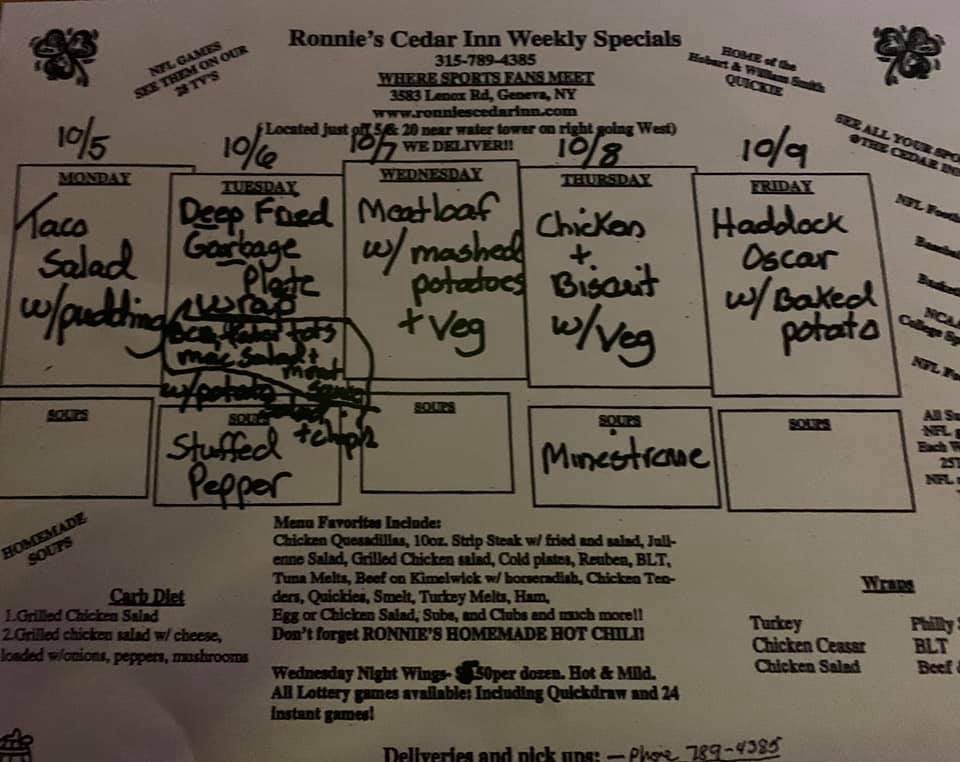 Ronnie's Cedar Inn Weekly Specials
315-789-4385
WHERE SPORTS FANS MEET
3583 Lenox Rd, Geneva, NY
www.ronniescedarinn.com
(Located just off 5 & 20 near water tower on right going West)
WE DELIVER!!
NFL GAMES
SEE THEM ON OUR
28 TV'S
HOME of the
Hobart & William Smith
QUICKIE
SEE ALL YOUR SPO
@THE CEDAR INN
NFL Footb
NCAA
College Sp
NFL Fo
10/5
MONDAY
Taco
Salad
w/pudding
10/6
TUESDAY
Deep Fried
Garbage
Plate
wrap
mac salad +
meat
sauce
w/potato
salad
+ chips
10/7
WEDNESDAY
Meatloaf
w/ mashed
potatoes
+ Veg
10/8
THURSDAY
Chicken
+
Biscuit
w/ Veg
10/9
FRIDAY
Haddock
Oscar
w/ Baked
potato
SOUPS
SOUPS
Stuffed
Pepper
SOUPS
SOUPS
Minestrone
SOUPS
All Su
NFL g
Each W
NFL
HOMEMADE
SOUPS
Menu Favorites Include:
Chicken Quesadillas, 10oz. Strip Steak w/ fried and salad, Jull-
enne Salad, Grilled Chicken salad, Cold plates, Reuben, BLT,
Tuna Melts, Beef on Kimelwick w/ horseradish, Chicken Ten-
ders, Quickies, Smelt, Turkey Melts, Ham,
Egg or Chicken Salad, Subs, and Clubs and much more!!
Don't forget RONNIE'S HOMEMADE HOT CHILI!
Carb Diet
1.Grilled Chicken Salad
2.Grilled chicken salad w/ cheese,
loaded w/onions, peppers, mushrooms
Wraps
Turkey Philly S
Chicken Ceasar BLT
Chicken Salad Beef &
Wednesday Night Wings- 50per dozen. Hot & Mild.
All Lottery games available: Including Quickdraw and 24
instant games!
Deliveries and pick ups: - Phone 789-4385